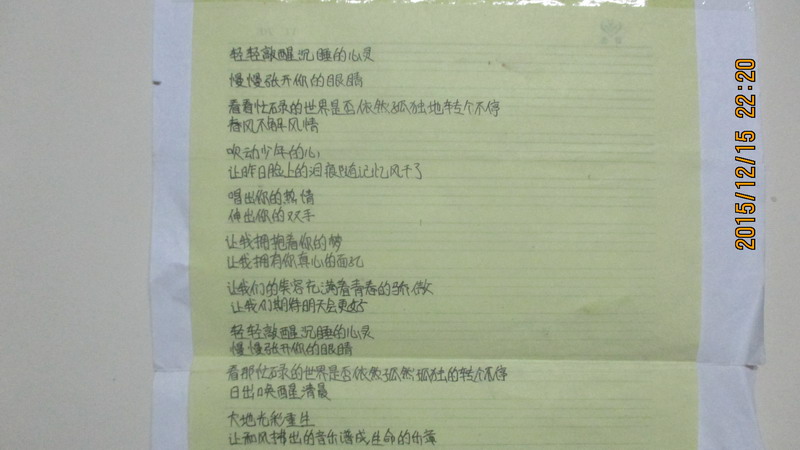 轻轻敲醒沉睡的心灵
慢慢张开你的眼睛
看看忙碌的世界是否依然孤独地转个不停
春风不解风情
吹动少年的心
让昨日脸上的泪痕随记忆风干了
唱出你的热情
伸出你的双手
让我拥抱着你的梦
让我拥有你真心的面孔
让我们的笑容充满着青春的骄傲
让我们期待明天会更好
轻轻敲醒沉睡的心灵
慢慢张开你的眼睛
看那忙碌的世界是否依然孤然孤独的转个不停
日出唤醒清晨
大地光彩重生
让和风拂出的音乐谱成生命的乐章
2015/12/15 22:20